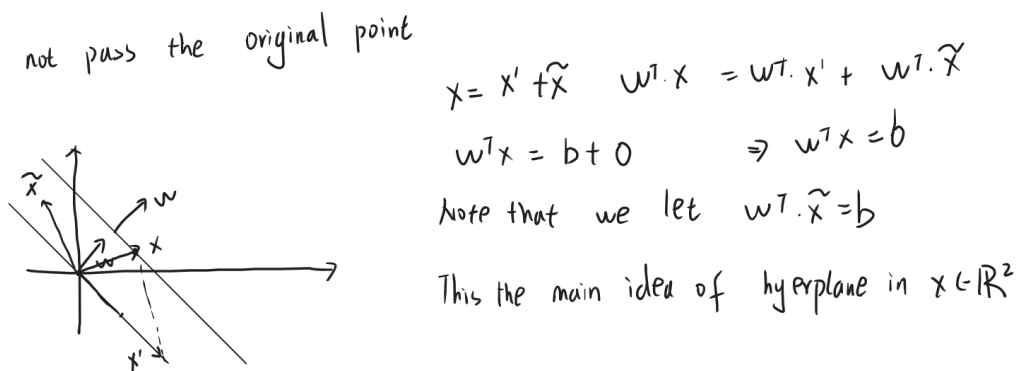 not pass the original point
x = x' + x̃   wᵀ. x = wᵀ. x' + wᵀ. x̃
wᵀx = b + 0   ⇒ wᵀx = b
Note that we let wᵀ. x̃ = b
This the main idea of hyerplane in x ∈ ℝ²
x̃
w
x
w
x'